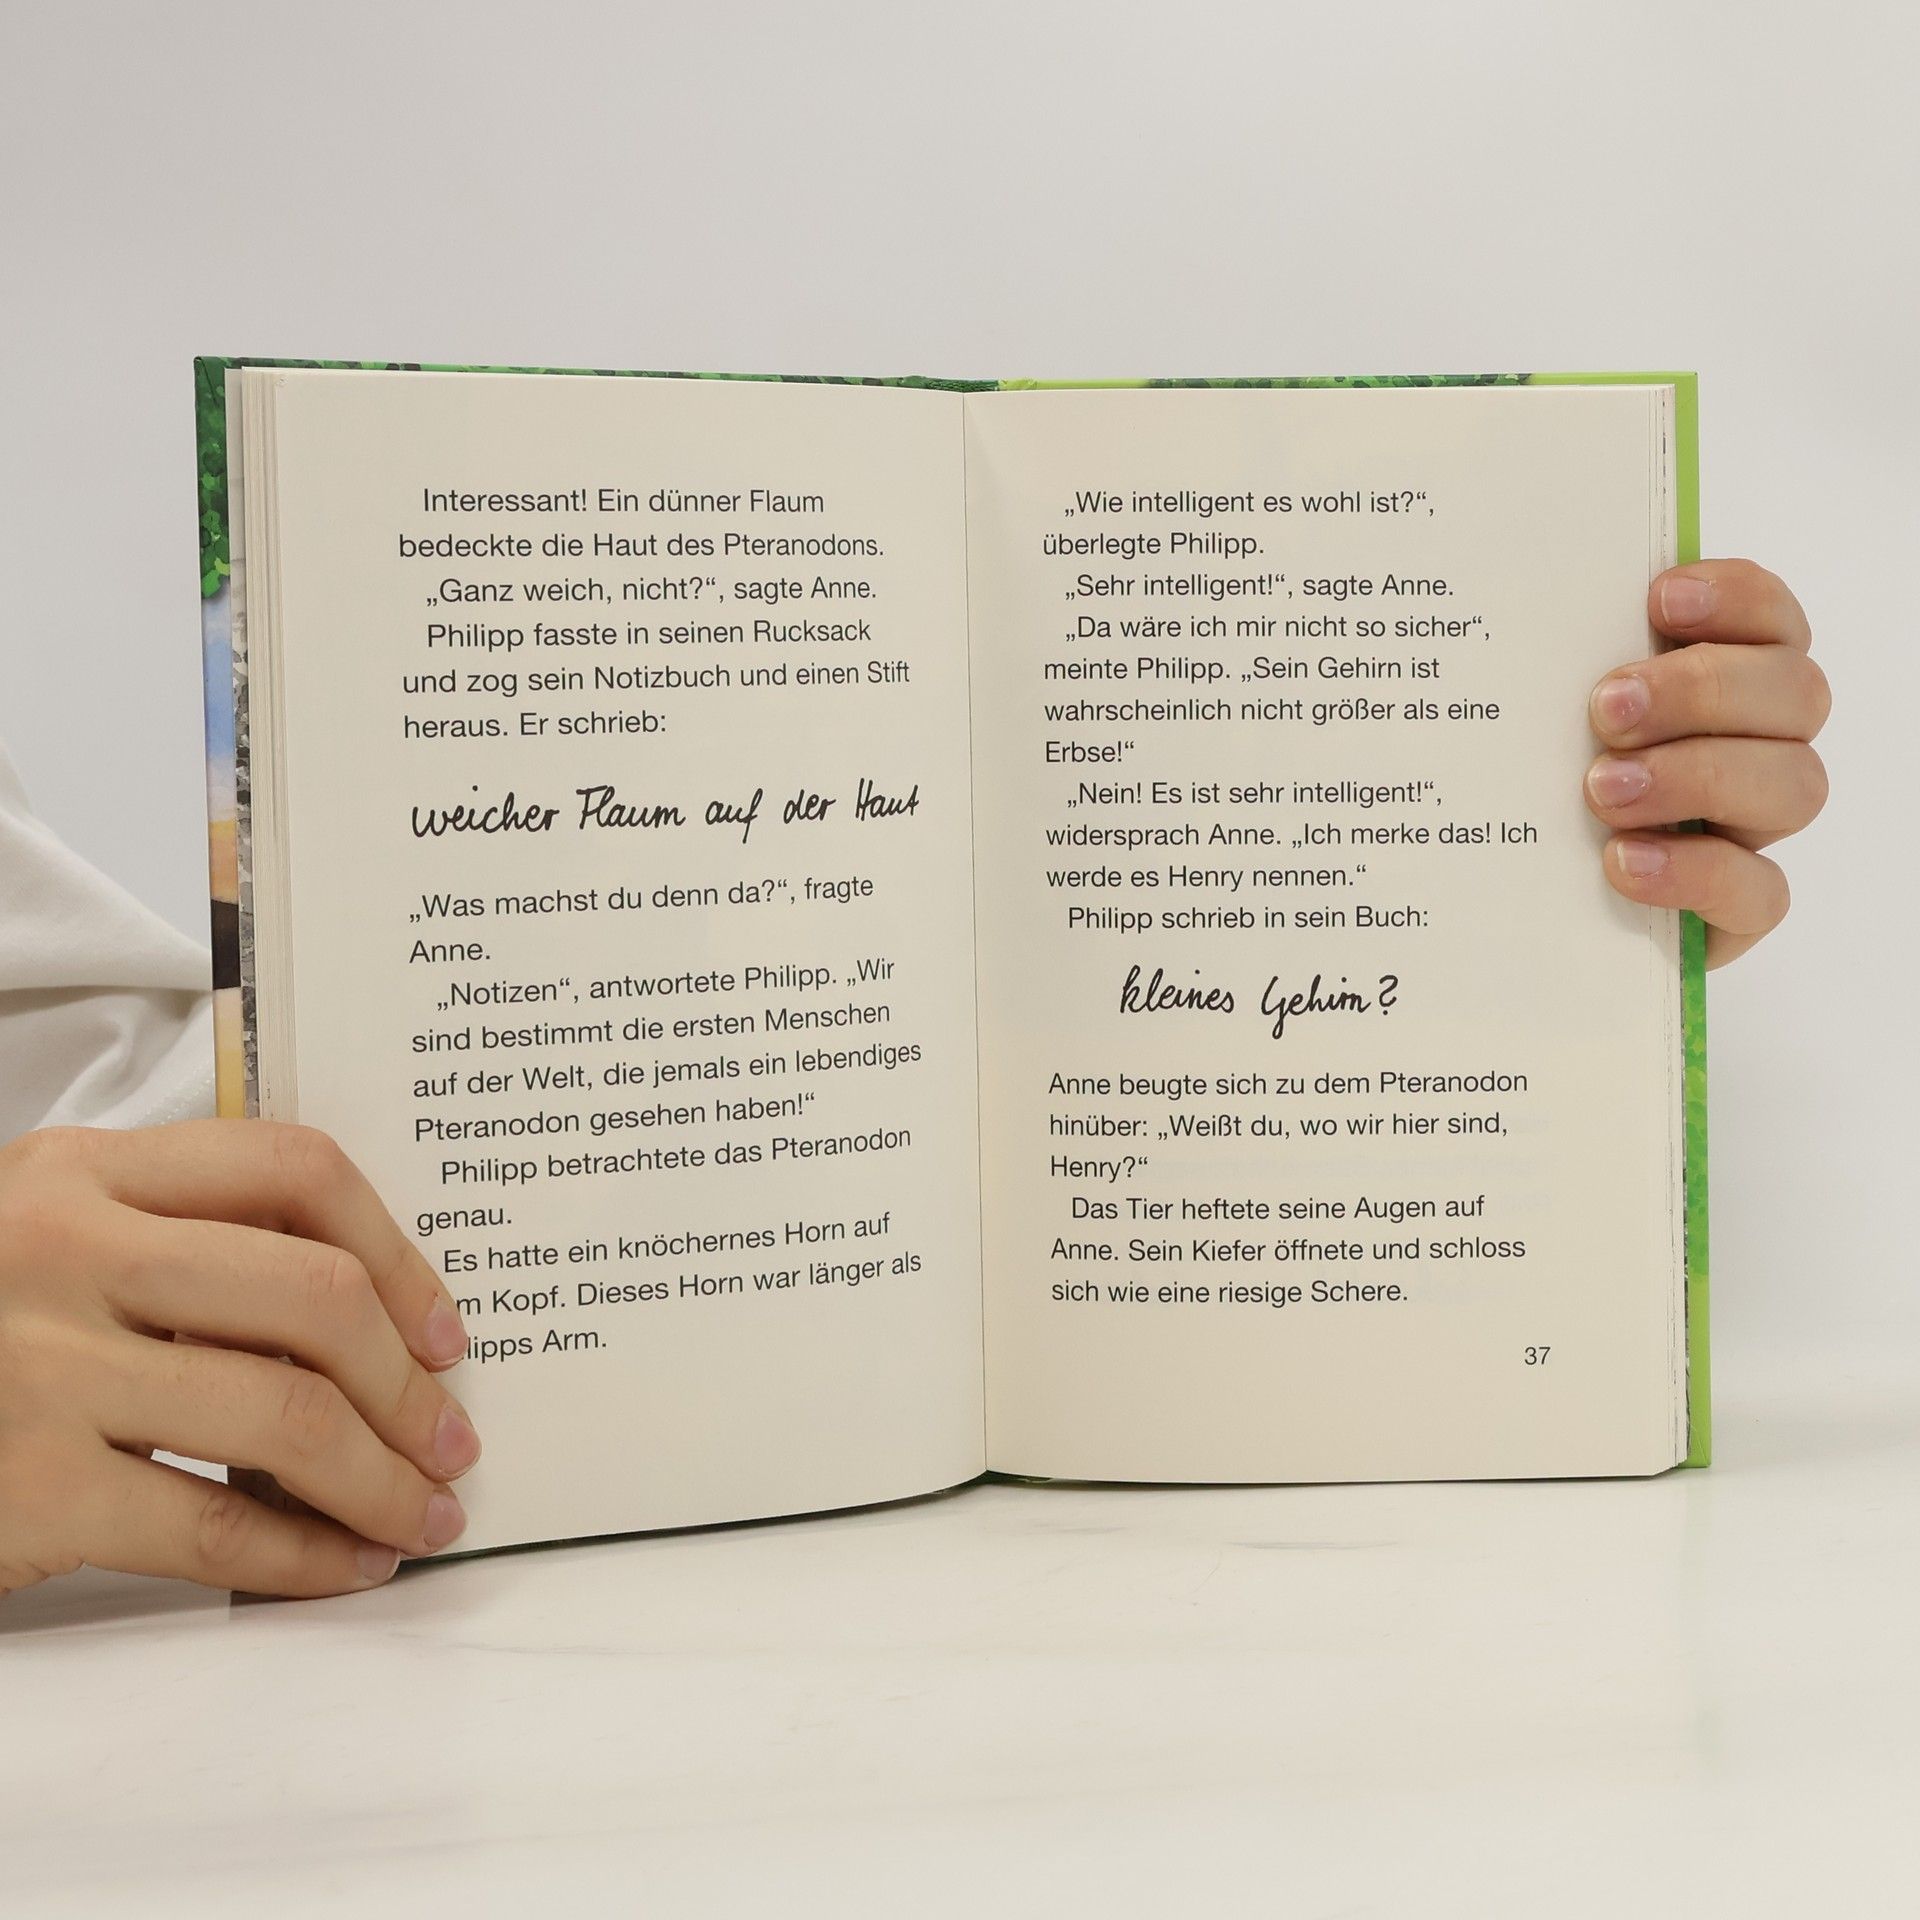 Interessant! Ein dünner Flaum
bedeckte die Haut des Pteranodons.
„Ganz weich, nicht?“, sagte Anne.
Philipp fasste in seinen Rucksack
und zog sein Notizbuch und einen Stift
heraus. Er schrieb:
weicher Flaum auf der Haut
„Was machst du denn da?“, fragte
Anne.
„Notizen“, antwortete Philipp. „Wir
sind bestimmt die ersten Menschen
auf der Welt, die jemals ein lebendiges
Pteranodon gesehen haben!“
Philipp betrachtete das Pteranodon
genau.
Es hatte ein knöchernes Horn auf
Kopf. Dieses Horn war länger als
Arm.
„Wie intelligent es wohl ist?“,
überlegte Philipp.
„Sehr intelligent!“, sagte Anne.
„Da wäre ich mir nicht so sicher“,
meinte Philipp. „Sein Gehirn ist
wahrscheinlich nicht größer als eine
Erbse!“
„Nein! Es ist sehr intelligent!“,
widersprach Anne. „Ich merke das! Ich
werde es Henry nennen.“
Philipp schrieb in sein Buch:
kleines Gehirn?
Anne beugte sich zu dem Pteranodon
hinüber: „Weißt du, wo wir hier sind,
Henry?“
Das Tier heftete seine Augen auf
Anne. Sein Kiefer öffnete und schloss
sich wie eine riesige Schere.
37